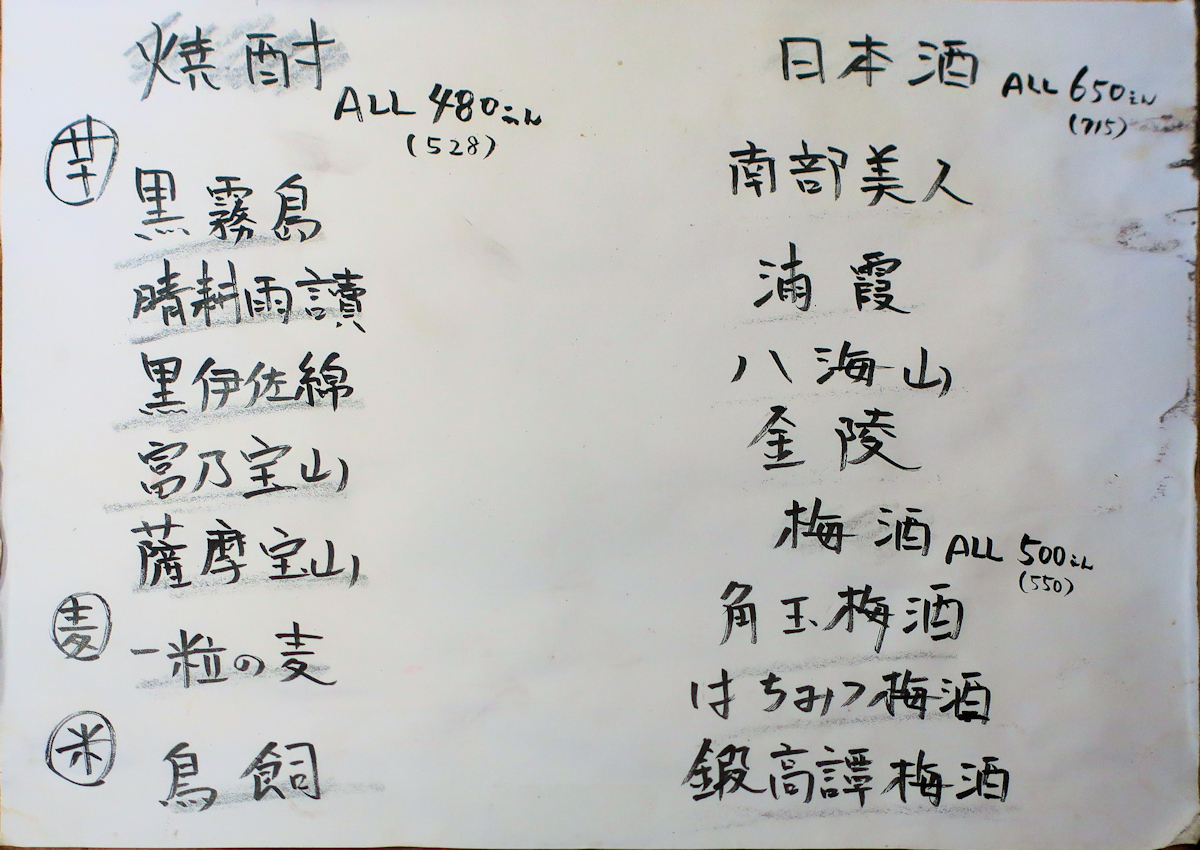 焼酎 ALL 480えん
(528)
芋
黒霧島
晴耕雨讀
黒伊佐錦
富乃宝山
薩摩宝山
麦
一粒の麦
米
鳥飼
日本酒 ALL 650えん
(715)
南部美人
浦霞
八海山
金陵
梅酒 ALL 500えん
(550)
角玉梅酒
はちみつ梅酒
鍛高譚梅酒